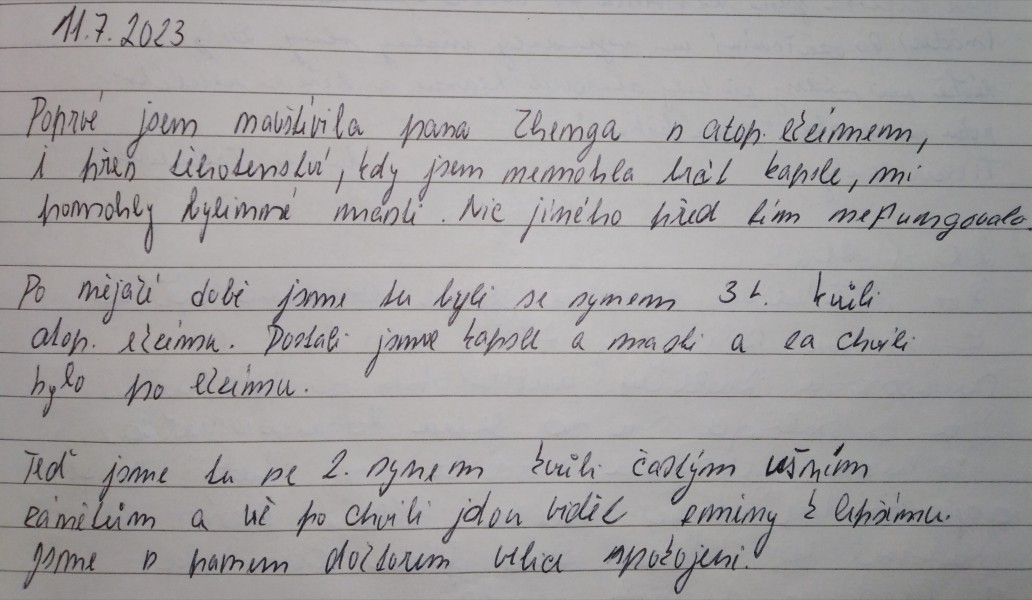 11.7.2023
Poprvé jsem navštívila pana Zhenga s atop. ekzémem,
i přes těhotenství, kdy jsem nemohla brát kapsle, mi
pomohly bylinné masti. Nic jiného před tím nefungovalo.
Po nějaké době jsme tu byli se synem 3 l. kvůli
atop. ekzému. Dostali jsme kapsle a masti a za chvíli
bylo po ekzému.
Teď jsme tu se 2. synem kvůli častým ušním
zánětům a už po chvíli jdou vidět změny k lepšímu.
Jsme s panem doktorem velice spokojeni.